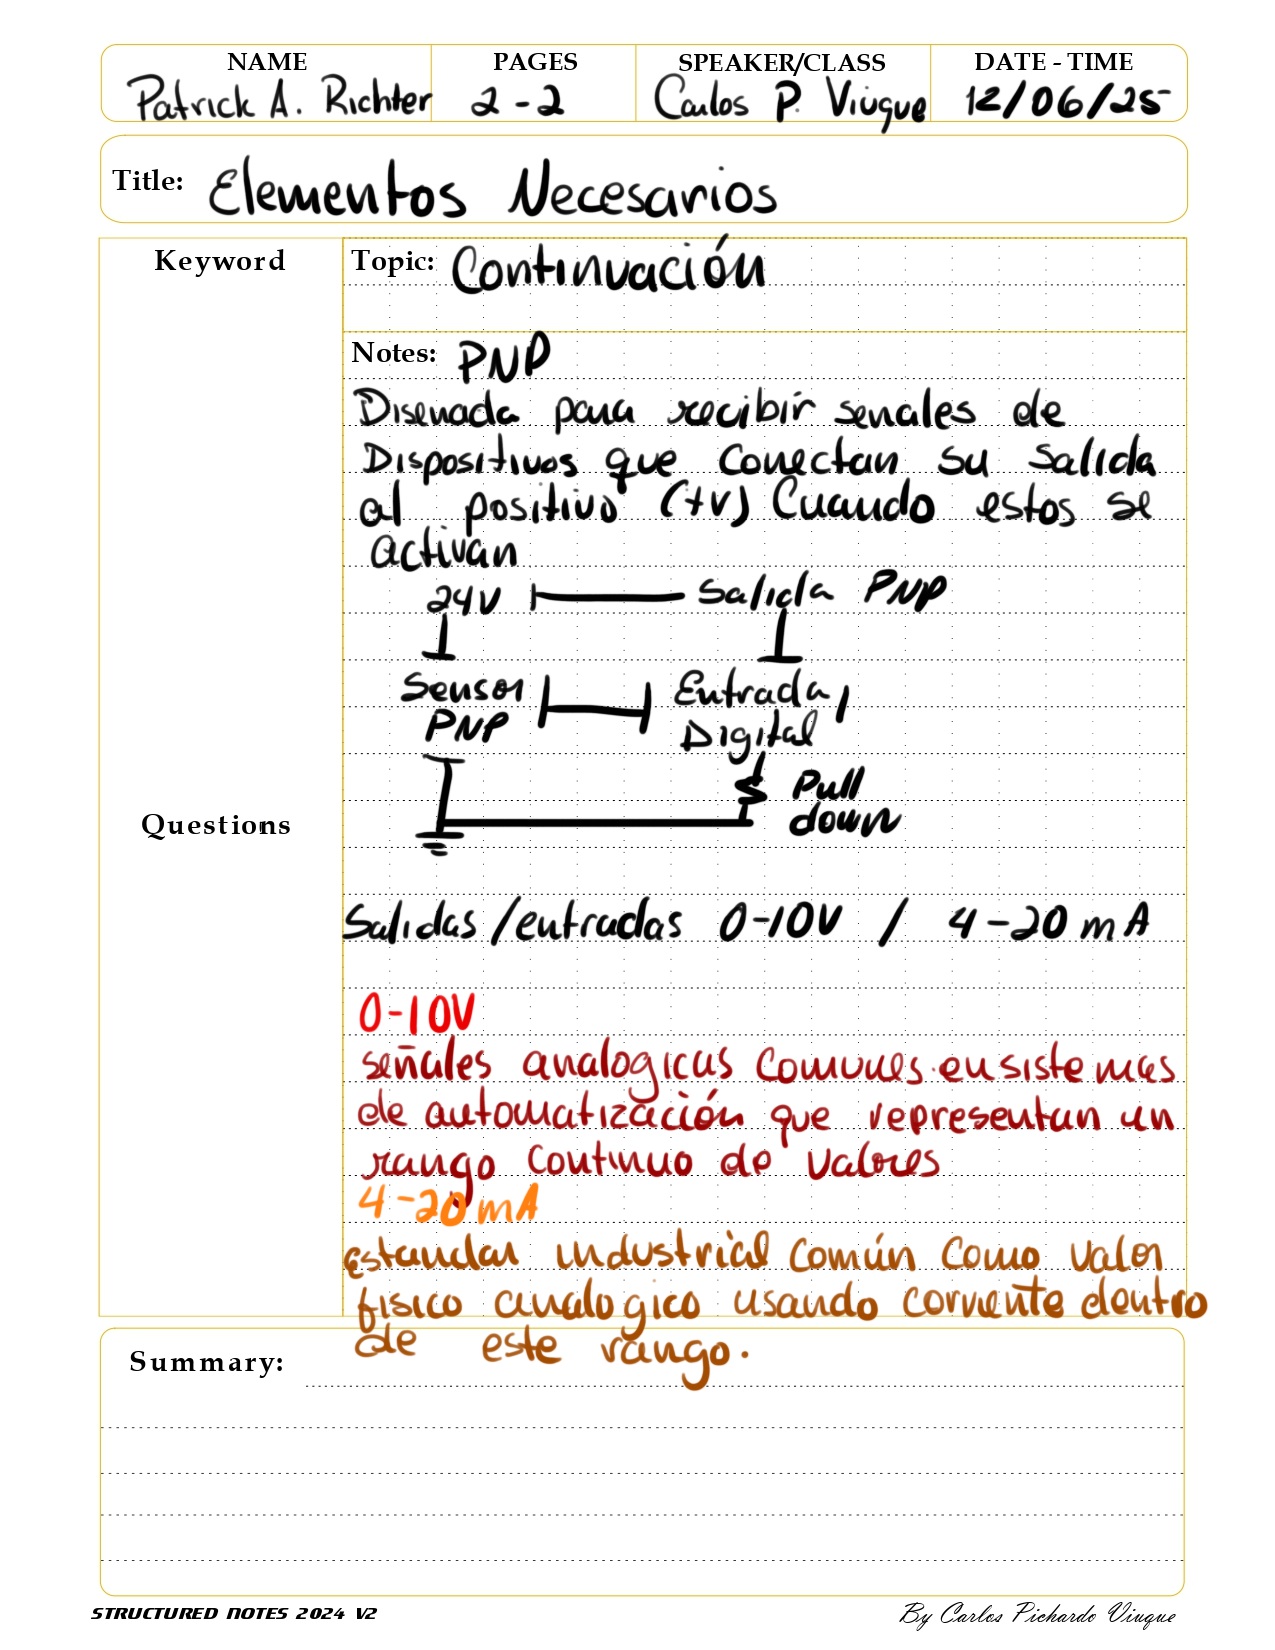 NAME PAGES SPEAKER/CLASS DATE - TIME
Patrick A. Richter 2-2 Carlos P. Viuque 12/06/25
Title: Elementos Necesarios
Keyword
Topic: Continuación
Notes: PNP
Disenada para recibir senales de
Dispositivos que conectan su salida
al positivo (+v) Cuando estos se
activan
24V Salida PNP
Sensor Entrada
PNP Digital
Pull
down
Questions
Salidas/entradas 0-10V / 4-20 mA
0-10V
señales analogicas comunes en sistemas
de automatización que representan un
rango continuo de valores
4-20 mA
Estandar industrial común como valor
fisico analogico usando corriente dentro
de este rango.
Summary:
STRUCTURED NOTES 2024 V2
By Carlos Pichardo Viuque